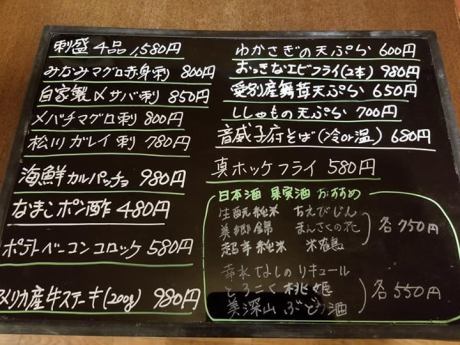 刺盛4品 1,580円
みなみマグロ赤身刺 800円
自家製〆サバ刺 850円
メバチマグロ刺 800円
松川ガレイ刺 780円
海鮮カルパッチョ 980円
なまこポン酢 480円
ポテトベーコンコロッケ 580円
メリカ産牛ステーキ(200g) 980円
わかさぎの天ぷら 600円
おっきなエビフライ(2本) 980円
愛別産舞茸天ぷら 650円
ししゃもの天ぷら 700円
音威子府そば(冷or温) 680円
真ホッケフライ 580円
日本酒 果実酒 おすすめ
生酛純米 ちえびじん
美郷錦 まんさくの花
超辛純米 米鶴
各750円
幸水なしのリキュール
とろこく桃姫
美深山ぶどう酒
各550円